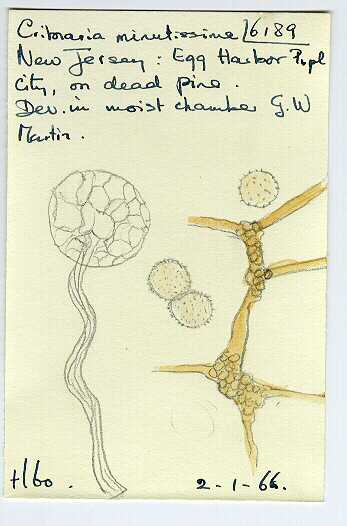 Cribraria minutissima 6189
New Jersey : Egg Harbor
City, on dead pine .
Dev. in moist chamber G.W
Martin .
H160 .
2-1-66.